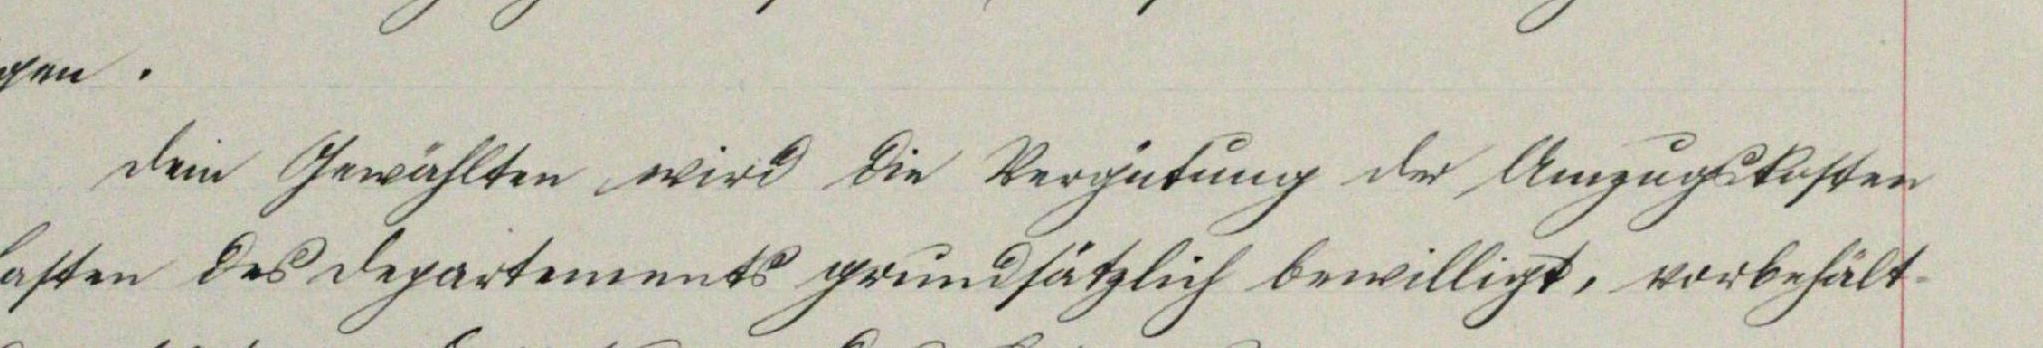 gen.
Dem Gewählten wird die Vergütung der Umzugskosten
lasten des Departements grundsätzlich bewilligt, vorbehält-